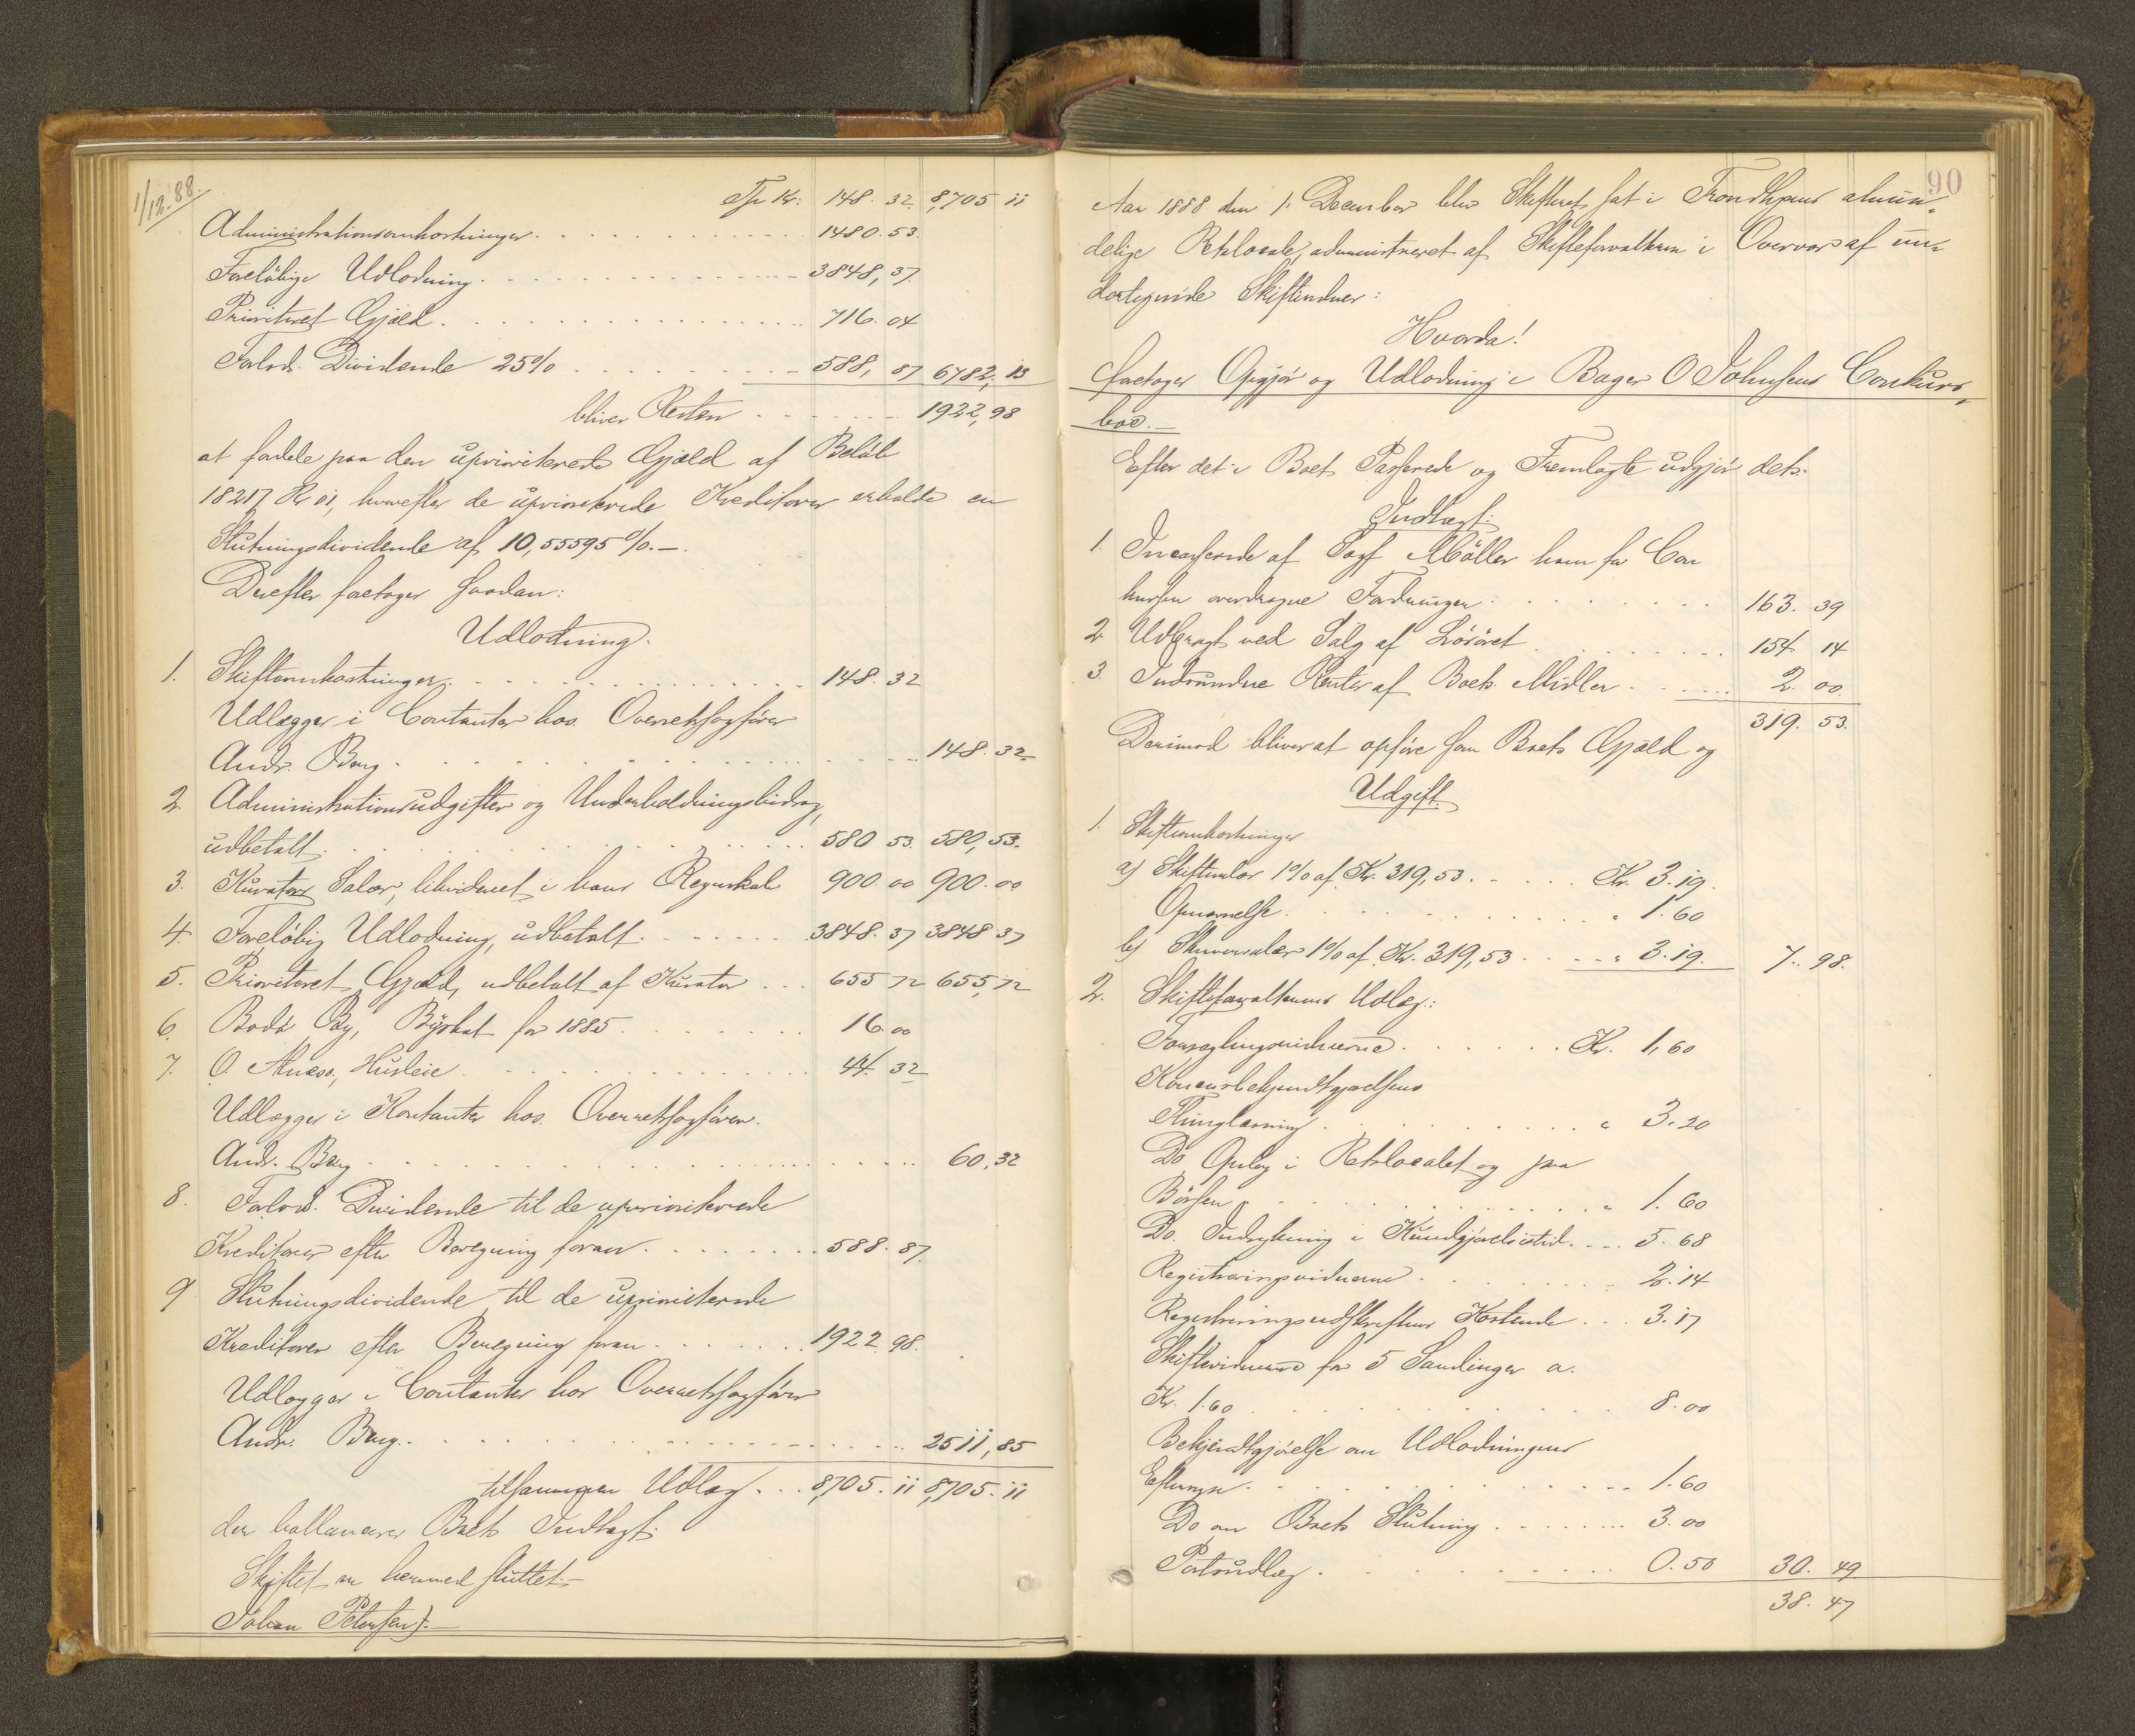 1/12.88.
Tfr Kr. 148. 32 8,705 11
Administrationsomkostninger 1480. 53.
Foreløbige Udlodning 3848, 37.
Prioriteret Gjæld 716. 04
Forlods Dividende 25% 588, 87 6782, 13
bliver Resten 1922, 98
at fordele paa den uprioriterede Gjæld af Beløb
18217 Kr 01, hvorefter de uprioriterede Kreditorer erholde en
Slutningsdividende af 10,55595 %. —
Derefter foretoges saadan:
Udlodning.
1. Skifteomkostninger 148. 32
Udlægges i Contanter hos Overretssagfører
Andr. Berg 148. 32
2. Administrationsudgifter og Underholdningsbidrag,
udbetalt 580 53. 580, 53.
3. Kurators Salær, likvideret i hans Regnskab 900. 00 900. 00
4. Foreløbig Udlodning, udbetalt 3848. 37 3848 37
5. Prioriteret Gjæld, udbetalt af Kurator 655 72 655, 72
6. Bodø By, Byskat for 1885 16. 00
7. O. Husleie 44. 32
Udlægges i Kontanter hos Overretssagfører
Andr. Berg 60, 32
8. Forlods Dividende til de uprioriterede
Kreditorer efter Beregning foran 588. 87.
9 Slutningsdividende til de uprioriterede
Kreditorer efter Beregning foran 1922. 98.
Udlægges i Contanter hos Overretssagfører
Andr. Berg 2511, 85
tilsammen Udlæg 8,705. 11 8,705. 11
der ballancerer Boets Indtægt.
Skiftet er hermed sluttet. —
Johan Petersen
90
Aar 1888 den 1. December blev Skifteret sat i Trondhjems almin-
delige Retslocale, administreret af Skifteforvalteren i Overvær af un-
dertegnede Skiftevidner:
Hvorda!
foretoges Opgjør og Udlodning i Bager O Johnsens Conkurs-
boe. —
Efter det i Boet Passerede og Fremlagte udgjør dets:
Indtægt:
1. Incasserede af Sagf Møller ham for Con
kursen overdragne Fordringer 163. 39
2 Udbragt ved Salg af Løsøret 154 14
3. Indvundne Renter af Boets Midler 2. 00.
319. 53.
Derimod bliver at opføre som Boets Gjæld og
Udgift.
1. Skifteomkostninger
a) Skiftesalær 1% af Kr. 319,53 Kr. 3. 19.
Opnævnelse " 1. 60
b) Skriversalær 1% af Kr. 319,53 " 3. 19. 7. 98.
2. Skifteforvalterens Udlæg:
Forseglingsvidnerne Kr. 1, 60
Konkursbekjendtgjørelsens
Thinglæsning " 3. 20
Do Opslag i Retslocalet og paa
Børsen " 1. 60
Do. Indrykning i Kundgjørelsestid. 5. 68
Registreringsvidnerne 2. 14
Registreringsudskriftens Kostende 3. 17
Skiftevidnerne for 5 Samlinger a.
Kr. 1. 60 8. 00
Bekjendtgjørelse om Udlodningens
Eftersyn 1. 60
Do om Boets Slutning 3. 00
Portoudlæg 0. 50 30. 49.
38. 47